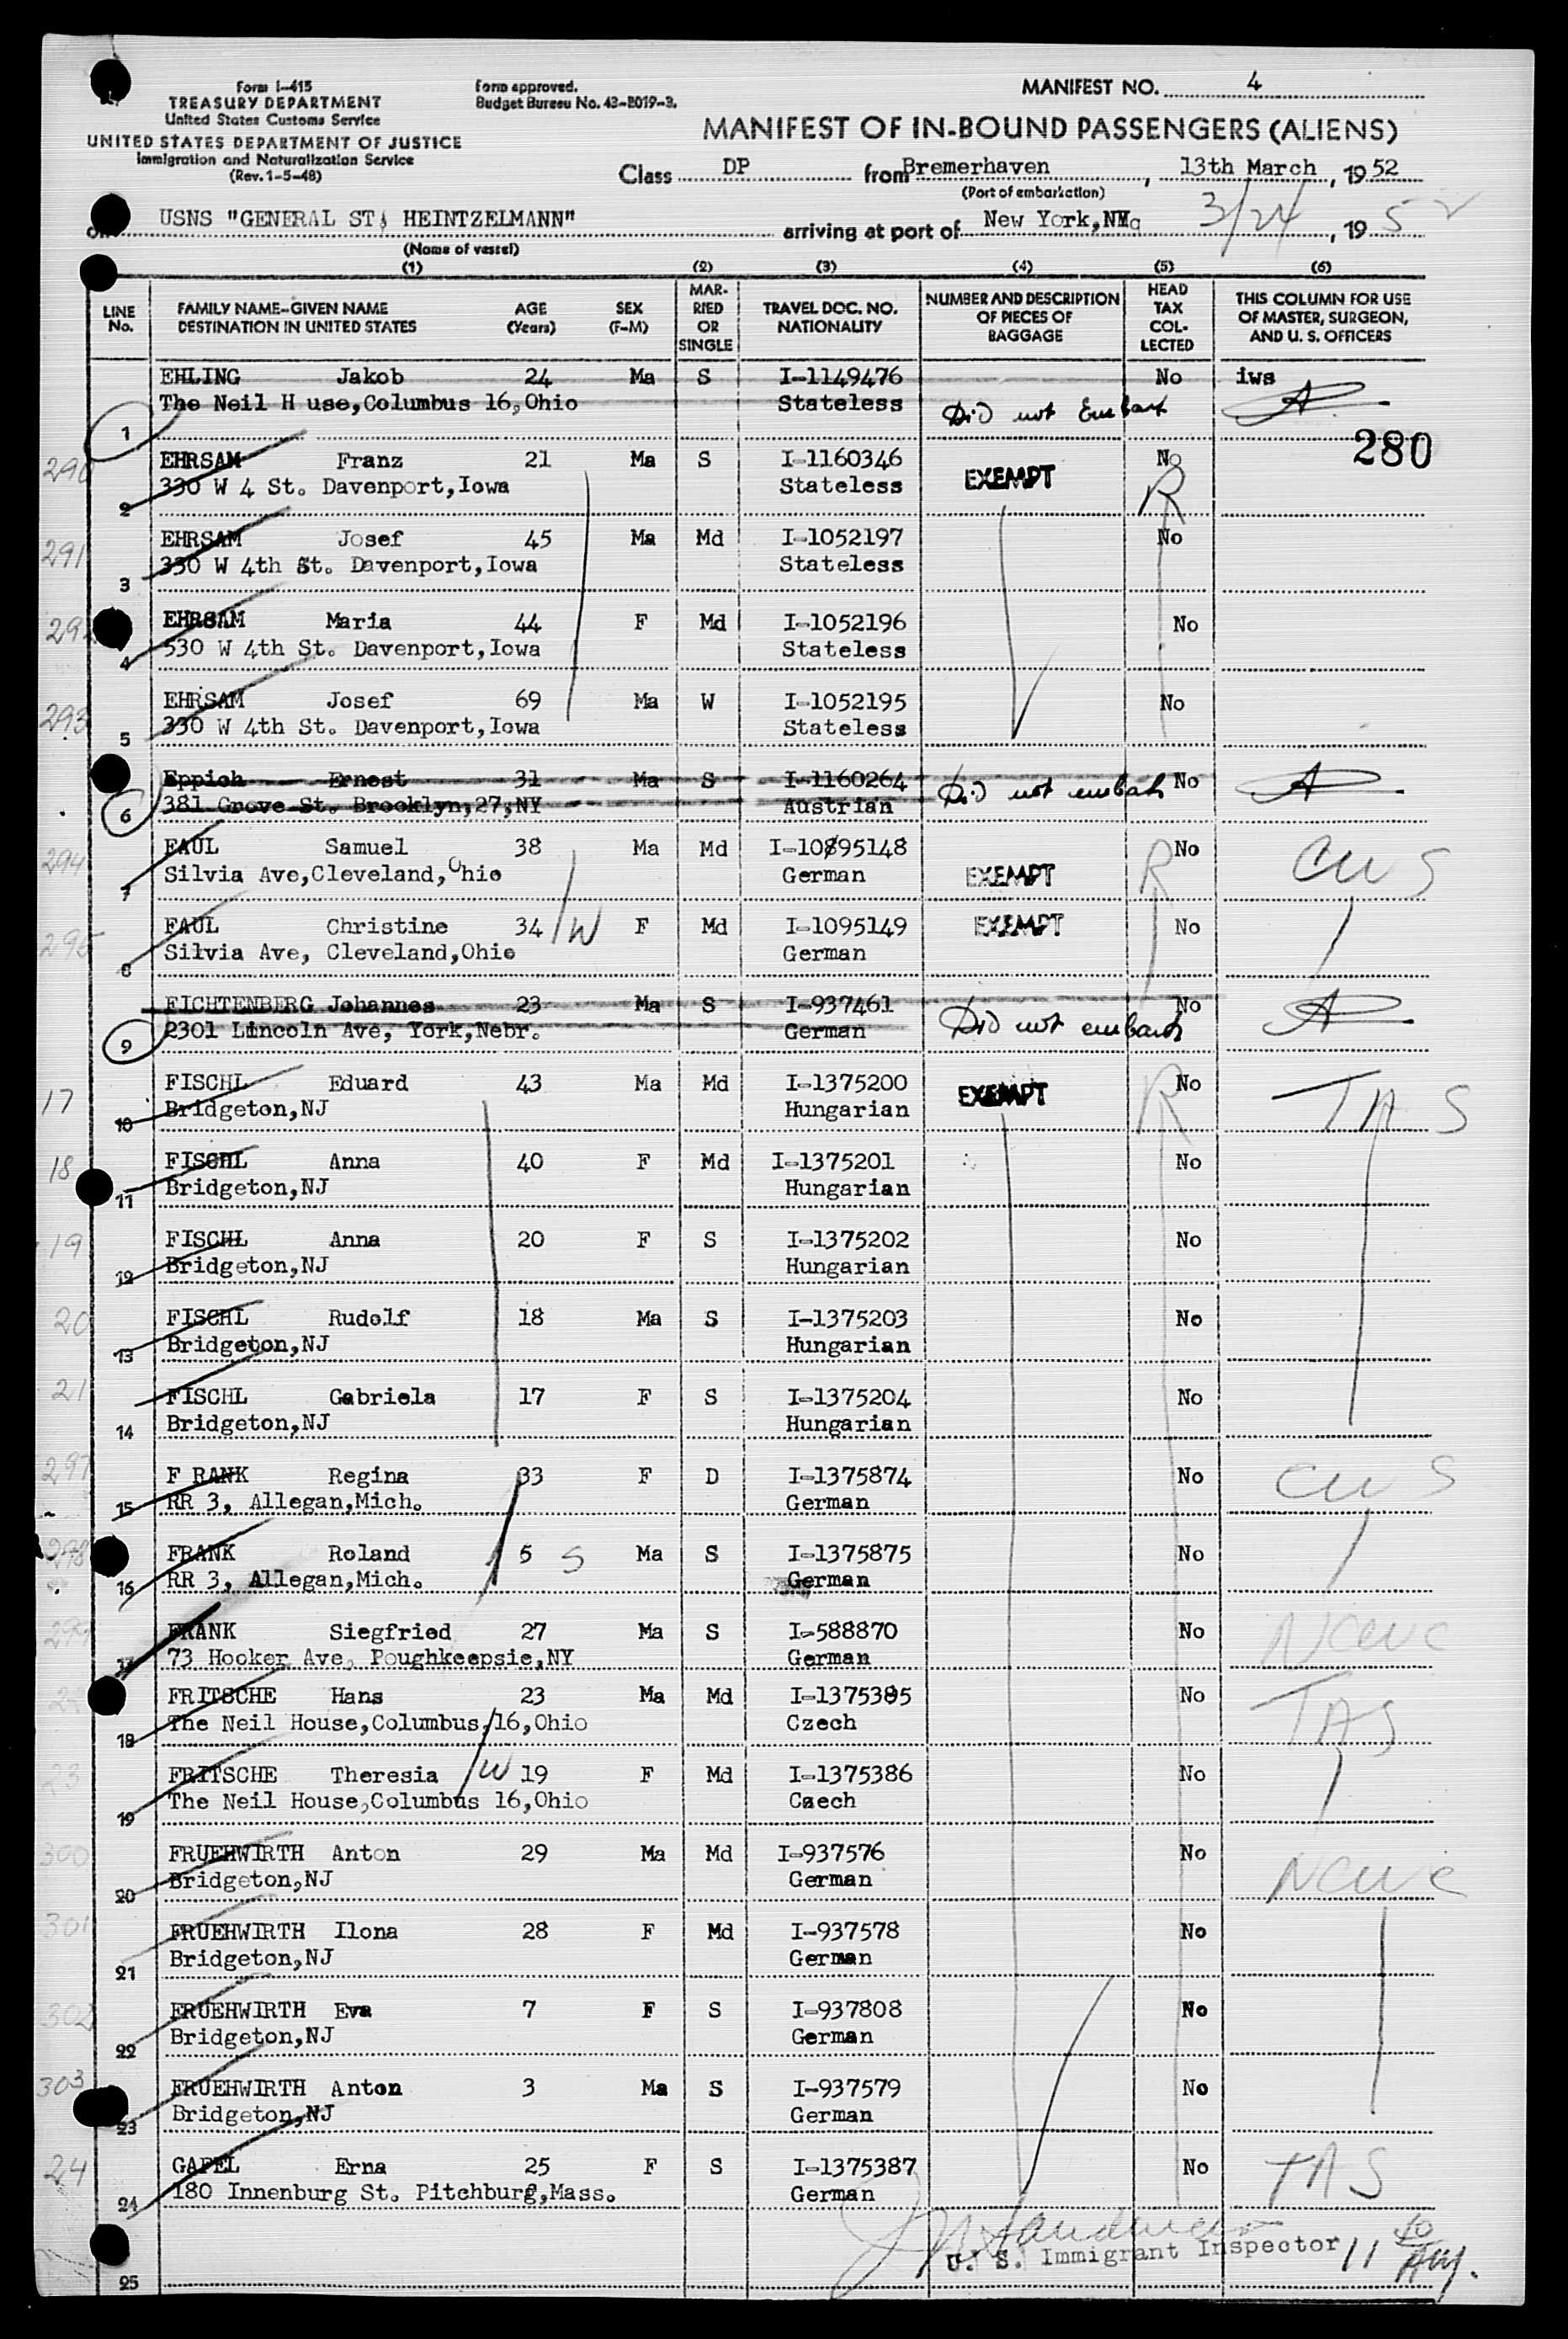 Form I-415
TREASURY DEPARTMENT
United States Customs Service
UNITED STATES DEPARTMENT OF JUSTICE
Immigration and Naturalization Service
(Rev. 1-5-48)
Form approved.
Budget Bureau No. 43-R019-3.
MANIFEST NO. 4
MANIFEST OF IN-BOUND PASSENGERS (ALIENS)
Class DP from Bremerhaven, 13th March, 1952
(Port of embarkation)
on USNS "GENERAL ST. HEINTZELMANN" arriving at port of New York, NY. 3/24, 1952
(Name of vessel)
(1) (2) (3) (4) (5) (6)
LINE No. FAMILY NAME-GIVEN NAME DESTINATION IN UNITED STATES AGE (Years) SEX (F-M) MARRIED OR SINGLE TRAVEL DOC. NO. NATIONALITY NUMBER AND DESCRIPTION OF PIECES OF BAGGAGE HEAD TAX COLLECTED THIS COLUMN FOR USE OF MASTER, SURGEON, AND U. S. OFFICERS
EHLING Jakob 24 Ma S I-1149476 No iws
1 The Neil H use,Columbus 16,Ohio Stateless Did not Embark A
280
290 EHRSAM Franz 21 Ma S I-1160346 EXEMPT No R
2 330 W 4 St. Davenport,Iowa Stateless
291 EHRSAM Josef 45 Ma Md I-1052197 No
3 330 W 4th St. Davenport,Iowa Stateless
292 EHRSAM Maria 44 F Md I-1052196 No
4 530 W 4th St. Davenport,Iowa Stateless
293 EHRSAM Josef 69 Ma W I-1052195 No
5 330 W 4th St. Davenport,Iowa Stateless
Eppich Ernest 31 Ma S I-1160264 Did not embark No A
6 381 Grove St. Brooklyn,27,NY Austrian
294 FAUL Samuel 38 Ma Md I-10895148 R No CWS
7 Silvia Ave,Cleveland,Ohio German EXEMPT
295 FAUL Christine 34 W F Md I-1095149 EXEMPT No
8 Silvia Ave, Cleveland,Ohio German
FICHTENBERG Johannes 23 Ma S I-937461 No A
9 2301 Lincoln Ave, York,Nebr. German Did not embark
17 FISCHL Eduard 43 Ma Md I-1375200 EXEMPT R No TAS
10 Bridgeton,NJ Hungarian
18 FISCHL Anna 40 F Md I-1375201 No
11 Bridgeton,NJ Hungarian
19 FISCHL Anna 20 F S I-1375202 No
12 Bridgeton,NJ Hungarian
20 FISCHL Rudolf 18 Ma S I-1375203 No
13 Bridgeton,NJ Hungarian
21 FISCHL Gabriela 17 F S I-1375204 No
14 Bridgeton,NJ Hungarian
297 F RANK Regina 33 F D I-1375874 No CWS
15 RR 3, Allegan,Mich. German
298 FRANK Roland 5 S Ma S I-1375875 No
16 RR 3, Allegan,Mich. German
FRANK Siegfried 27 Ma S I-588870 No NCWC
17 73 Hooker Ave, Poughkeepsie,NY German
FRITSCHE Hans 23 Ma Md I-1375385 No TAS
18 The Neil House,Columbus,16,Ohio Czech
23 FRITSCHE Theresia W 19 F Md I-1375386 No
19 The Neil House,Columbus 16,Ohio Czech
300 FRUEHWIRTH Anton 29 Ma Md I-937576 No NCWC
20 Bridgeton,NJ German
301 FRUEHWIRTH Ilona 28 F Md I-937578 No
21 Bridgeton,NJ German
302 FRUEHWIRTH Eva 7 F S I-937808 No
22 Bridgeton,NJ German
303 FRUEHWIRTH Anton 3 Ma S I-937579 No
23 Bridgeton,NJ German
24 GAPEL Erna 25 F S I-1375387 No TAS
24 180 Innenburg St. Pitchburg,Mass. German
U. S. Immigrant Inspector 11
25